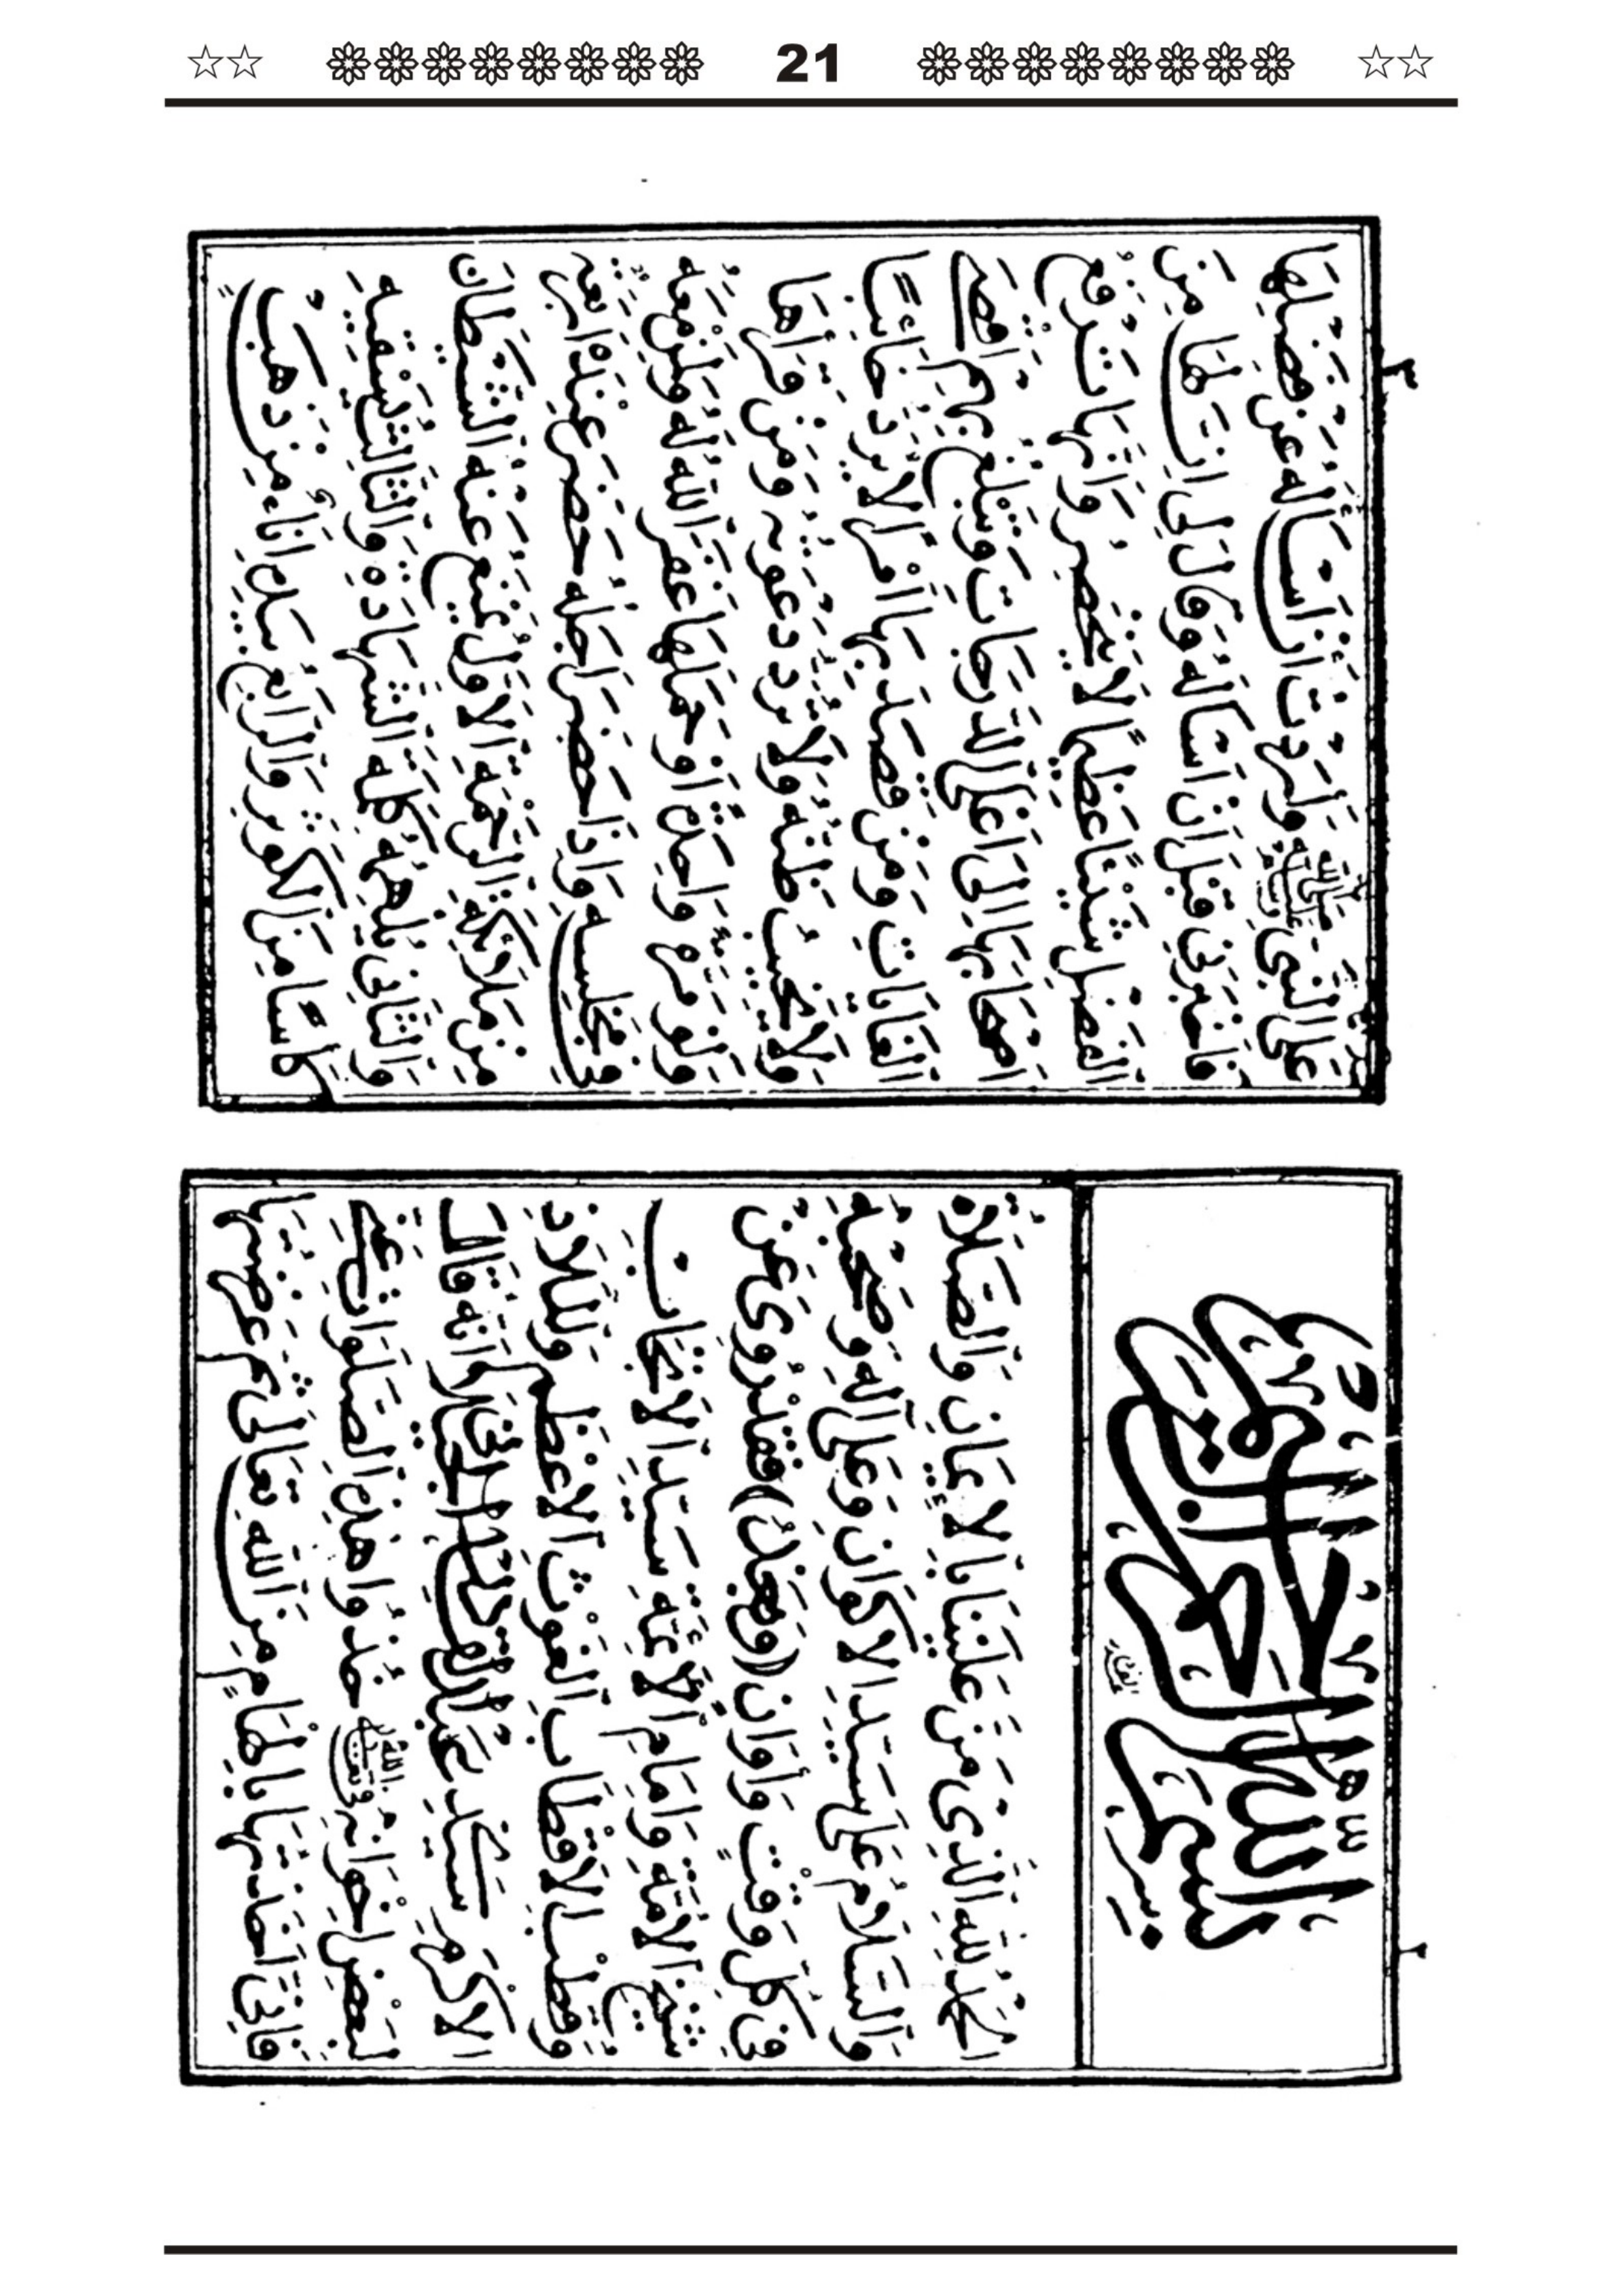 21
٢
بسم الله الرحمن الرحيم
اَلْحَمْدُ لِلّٰهِ الَّذِى مَنَّ عَلَيْنَا بِالْاِيْمَانِ وَالصَّلَاةُ
وَالسَّلَامُ عَلٰى سَيِّدِ الْاَكْوَانِ وَعَلٰى اٰلِهٖ وَصَحْبِهٖ
فِى كُلِّ وَقْتٍ وَاَوَانٍ (وَبَعْدُ) فَقَدْ رُوِىَ عَنْ
شَيْخِ الْاُمَّةِ وَاِمَامِ الْاَئِمَّةِ سَيِّدِ الْاَنْجَابِ
وَقُطْبِ الْاَقْطَابِ الْغَوْثِ الْاَعْظَمِ وَالْمَلَاذِ
الْاَكْرَمِ سَيِّدِى عَبْدِ الْقَادِرِ الْجِيْلَانِىِّ اَنَّهُ قَالَ
لِبَعْضِ اِخْوَانِهٖ خُذُوْا هٰذِهِ الصَّلَوَاتِ عَنِّىْ
فَاِنِّىْ اَخَذْتُهَا بِاِلْهَامٍ مِنَ اللّٰهِ تَعَالٰى ثُمَّ عَرَضْتُهَا
٣
عَلَى النَّبِىِّ صَلَّى اللّٰهُ عَلَيْهِ وَسَلَّمَ وَاَرَدْتُ اَنْ اَسْاَلَهُ عَنْ فَضْلِهَا
فَاَخْبَرَنِىْ قَبْلَ اَنْ اَسْاَلَهُ وَقَالَ لِىْ اِنَّ لَهَا مِنَ
الْفَضْلِ شَيْئًا عَظِيْمًا لَا يُحْصَرُ وَاِنَّهَا تَرْفَعُ
اَصْحَابَهَا اِلٰى اَعْلَى الدَّرَجَاتِ وَتُبَلِّغُهُمْ اَقْصَى
الْغَايَاتِ وَمَنْ قَصَدَ بِهَا اَمْرًا لَا يُرَدُّ خَائِبًا
وَلَا يَخِيْبُ ظَنُّهُ وَلَا تُرَدُّ دَعْوَتُهُ وَمَنْ قَرَاَهَا
وَلَوْ مَرَّةً وَاحِدَةً اَوْ حَمَلَهَا غَفَرَ اللّٰهُ لَهُ وَلِمَنْ مَعَهُ
فِىْ مَجْلِسِهٖ وَاِذَا حَضَرَ اَجَلُهُ حَضَرَ عِنْدَهُ اَرْبَعَةٌ
مِنْ مَلَائِكَةِ الرَّحْمَةِ الْاَوَّلُ يَمْنَعُ عَنْهُ الشَّيْطَانَ
وَالثَّانِىْ يُلْهِمُهُ كَلِمَةَ الشَّهَادَةِ وَالثَّالِثُ يَسْقِيْهِ
كَاْسًا مِنَ الْكَوْثَرِ وَالرَّابِعُ بِيَدِهٖ اِنَاءٌ مِنْ ذَهَبٍ